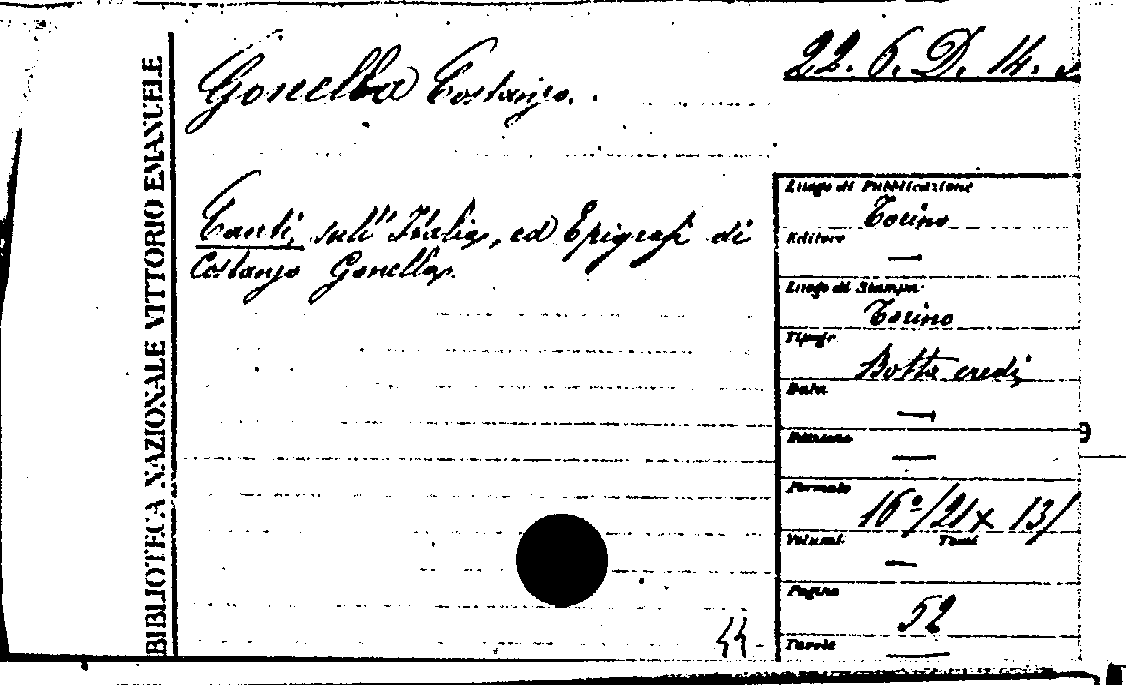 BIBLIOTECA NAZIONALE VITTORIO EMANUELE
22. 6. D. 14.
Gonella Costanzo.
Canti, sull' Italia, ed Epigrafi di
Costanzo Gonella.
Luogo di Pubblicazione
Torino
Editore
—
Luogo di Stampa
Torino
Tipogr.
Botta eredi
Data
—
Edizione
—
Formato
16º/21x13/
Volumi. Tomi
—
Pagine
52
Tavole
—
44-